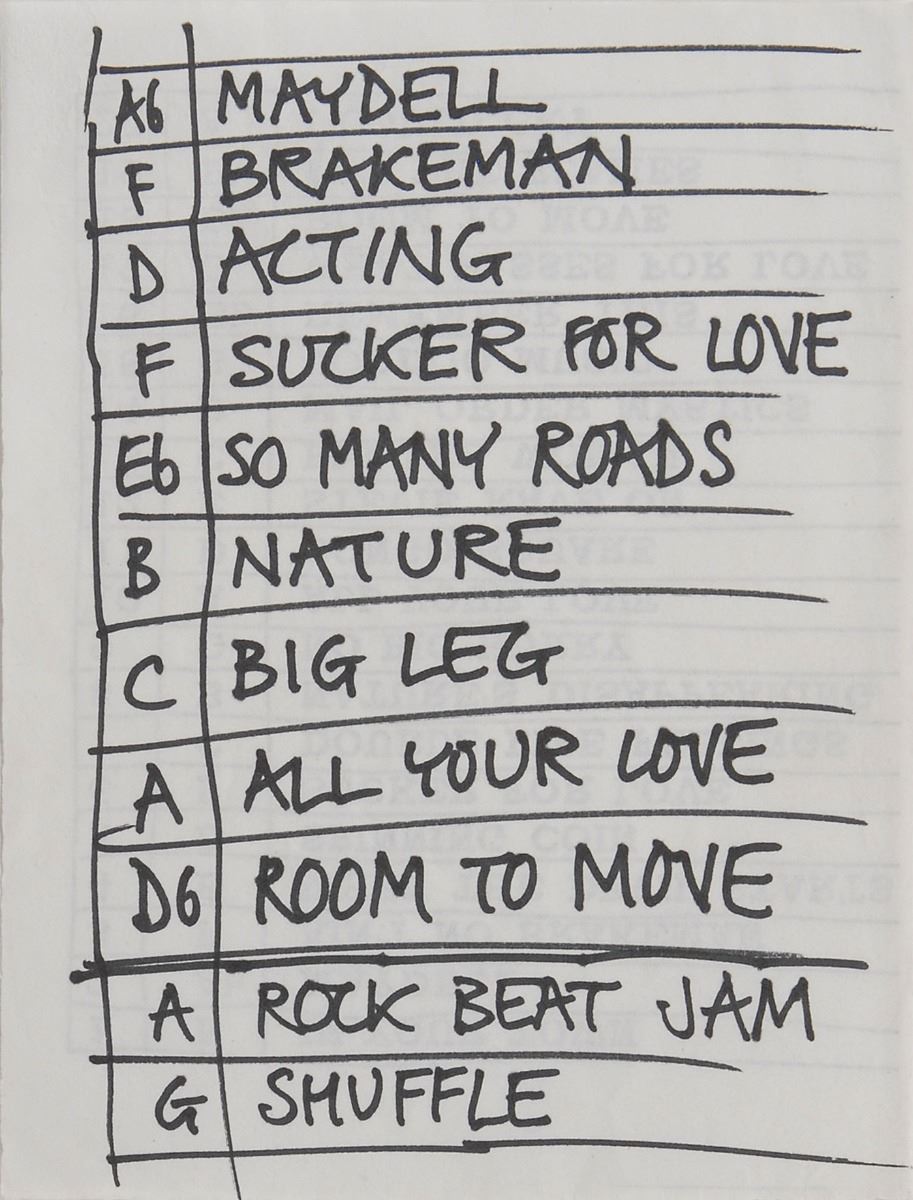 A6 MAYDELL
F BRAKEMAN
D ACTING
F SUCKER FOR LOVE
E6 SO MANY ROADS
B NATURE
C BIG LEG
A ALL YOUR LOVE
D6 ROOM TO MOVE
A ROCK BEAT JAM
G SHUFFLE